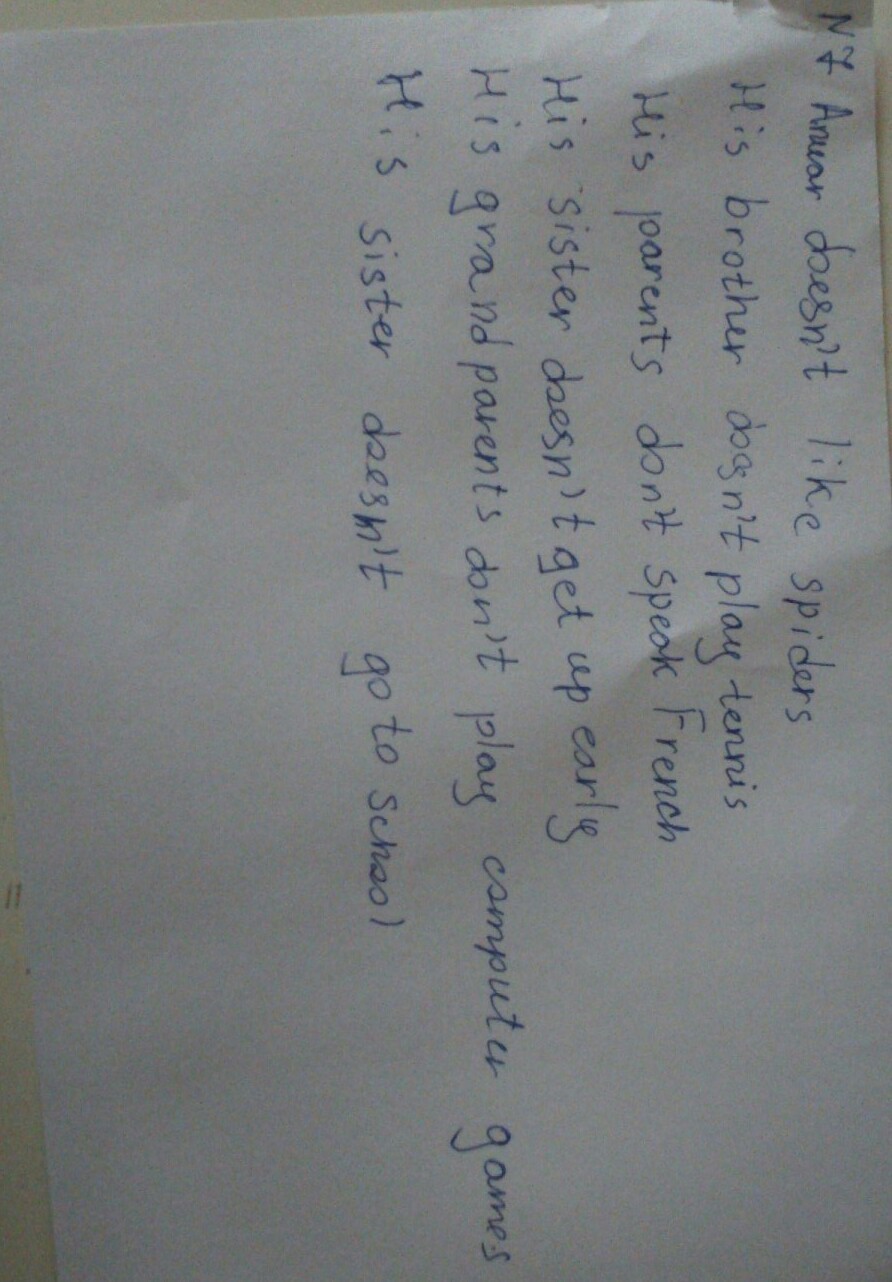 N 7 Anwar doesn't like spiders
His brother doesn't play tennis
His parents don't speak French
His sister doesn't get up early
His grandparents don't play computer games
His sister doesn't go to school